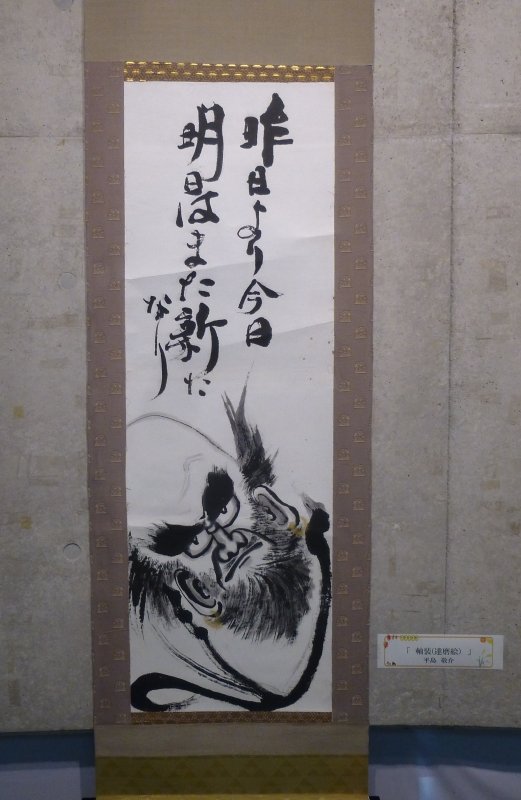 昨日より今日
明日はまた新た
なり
「 軸装(達磨絵) 」
平島 敬介